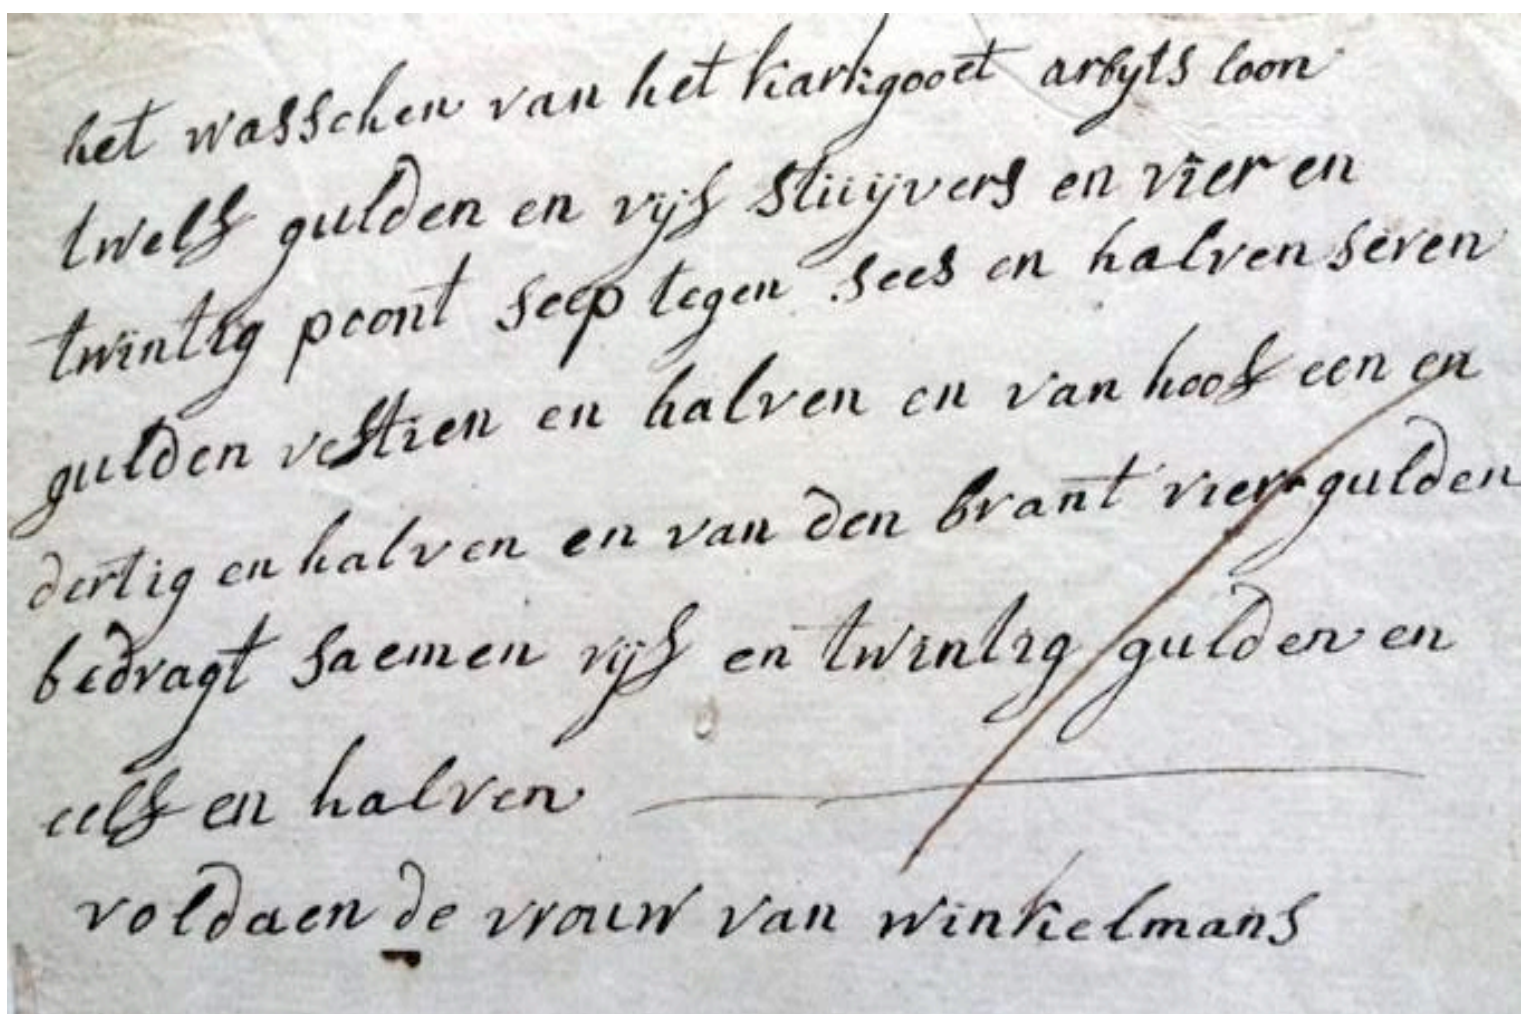 het wasschen van het karkgooet arbyts loon
twelf gulden en vijf stuijvers en vier en
twintig poont seep tegen sees en halven seven
gulden veftien en halven en van hoof een en
dertig en halven en van den brant vier gulden
bedragt saemen vijf en twintig gulden en
eelf en halven
voldaen de vrouw van winkelmans